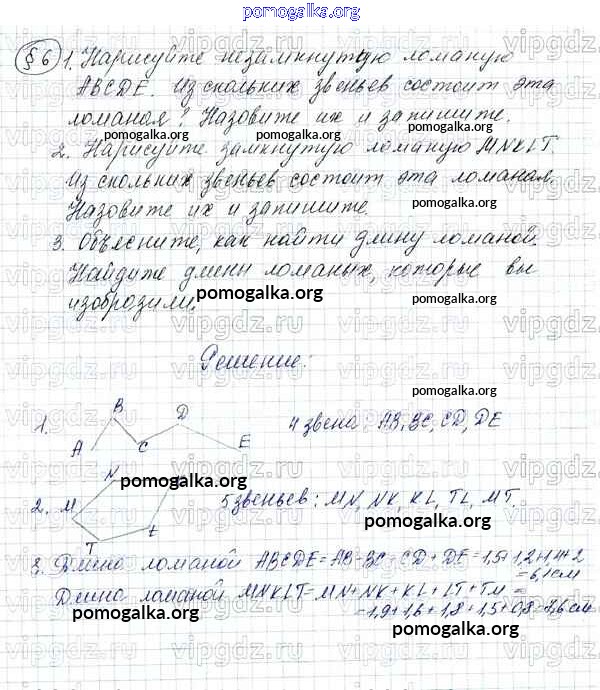 pomogalka.org
§ 6 1. Нарисуйте незамкнутую ломаную
ABCDE. Из скольких звеньев состоит эта
ломаная? Назовите их и запишите.
pomogalka.org pomogalka.org
2. Нарисуйте замкнутую ломаную MNKLT.
Из скольких звеньев состоит эта ломаная.
Назовите их и запишите.
pomogalka.org
3. Объесните, как найти длину ломаной.
Найдите длени ломаных, которые вы
изобразили.
pomogalka.org
Решение:
pomogalka.org
1. A B C D E 4 звена: AB, BC, CD, DE
pomogalka.org
2. M N T 5 звеньев: MN, NK, KL, TL, MT.
pomogalka.org
3. Длино ломаной ABCDE = AB + BC + CD + DE = 1,5 + 1,2 + 1,4 + 2
= 6,1 см
Длино ломаной MNKLT = MN + NK + KL + LT + TM =
= 1,9 + 1,6 + 1,8 + 1,5 + 0,8 = 7,6 см
pomogalka.org pomogalka.org
vipgdz.ru